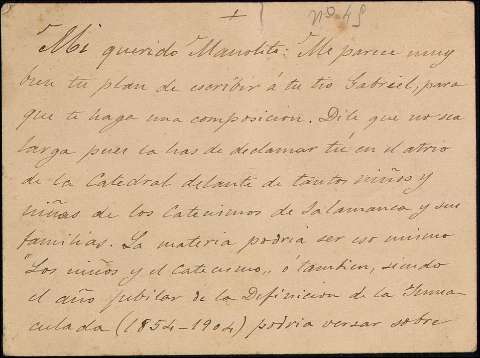 +
Nº 45
Mi querido Manolito: Me parece muy
bien tu plan de escribir á tu tio Gabriel, para
que te haga una composicion. Dile que no sea
larga pues la has de declamar tú en el atrio
de la Catedral delante de tantos niños y
niñas de los Catecismos de Salamanca y sus
familias. La materia podria ser eso mismo
"Los niños y el Catecismo,, ó tambien, siendo
el año jubilar de la Definicion de la Inma-
culada (1854-1904) podria versar sobre